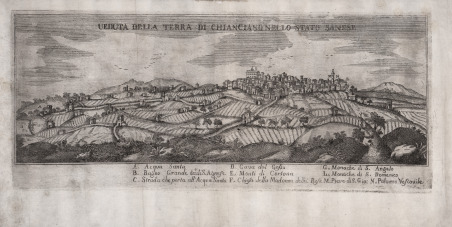 VEDUTA DELLA TERRA DI CHIANCIANO NELLO STATO SANESE
A. Acqua Santa D. Casa del G. Monache di S. Angelo
B. Bagno Grande di S. Agnese E. Monti di Cortona L. Monache di S.
C. Strada che porta all'Acqua Santa F. della Madonna della M. Pieve di S. Gio. N. Palazzo